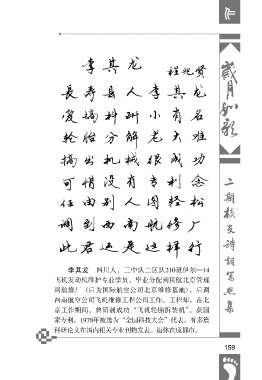 作
李其龙
程兆贤
长寿县人李其龙
爱搞科研小有名
轮胎分解老大难
搞出机械很成功
可惜没有专利念
任由别人图轻松
调到西南航修厂
此君还是这样行
李其龙 四川人，三中队二区队210班伊尔—14
飞机发动机维护专业学员，毕业分配到民航北京管理
局航修厂（后为国际航空公司北京维修基地），后调
西南航空公司飞机维修工程公司工作。工程师。在北
京工作期间，曾研制成功“飞机轮胎拆装机”，获国
家专利。1978年被选为“全国科技大会”代表。有多篇
科研论文在国内相关专业刊物发表。退休在成都市。
岁月如歌
二期校友诗词写照集
159